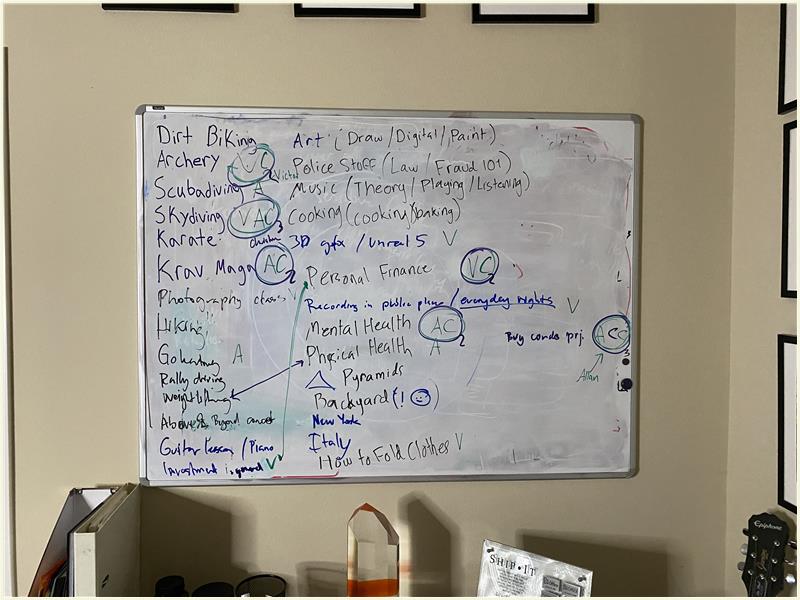 Dirt Biking
Archery VC 2 Victor
Scubadiving A
Skydiving VAC 3
Karate
Krav Maga AC 2
Photography classes V
Hiking
Gokarting A
Rally driving
Weightlifting
Above & Beyond concert
Guitar lesson / Piano
Investment in general V
Art (Draw/Digital/Paint)
Police Stuff (Law / Fraud 101)
Music (Theory/Playing/Listening)
Cooking (cooking/baking)
3D gfx / Unreal 5 V
Personal Finance VC 2
Recording in public place / everyday rights V
Mental Health AC 2
Physical Health A
Pyramids
Backyard (!
New York
Italy
How to Fold Clothes V
Buy condo prj. ACC 3
Allan
SHIP·IT
Epiphone